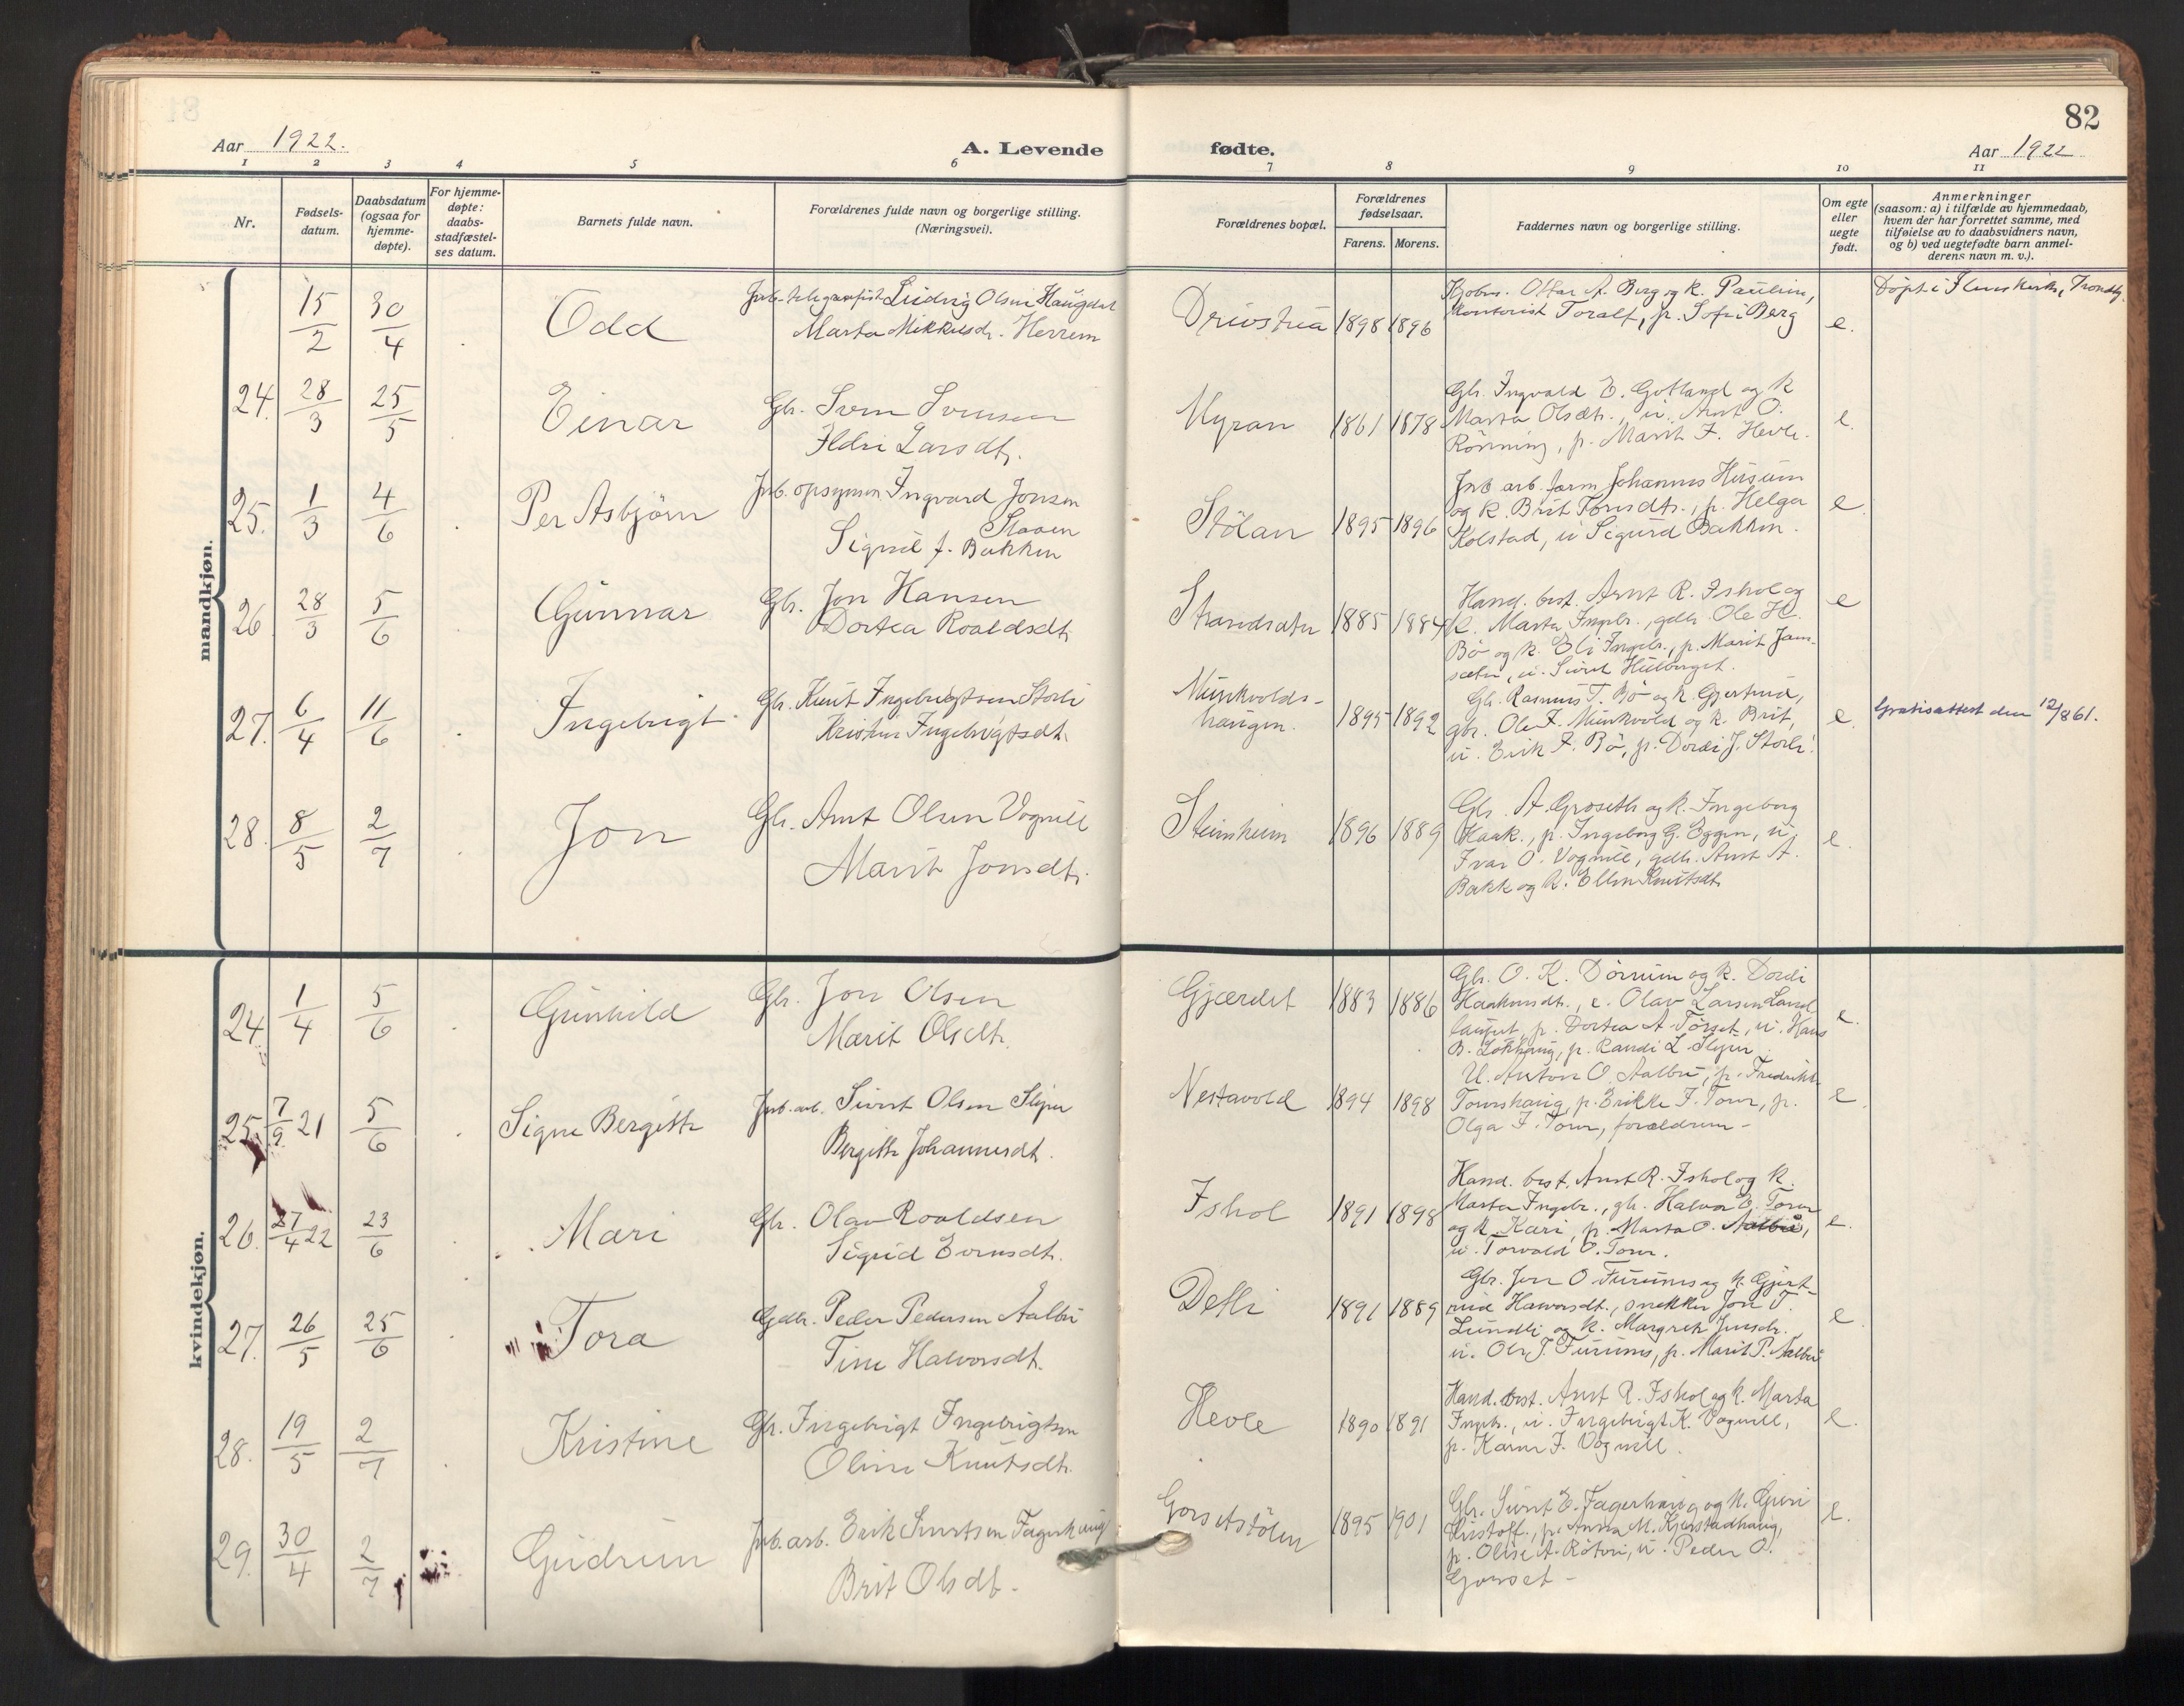 82
Aar 1922.
A. Levende
fødte.
Aar 1922
1 2 3 4 5 6 7 8 9 10 11
Nr.
Fødsels-
datum.
Daabsdatum
(ogsaa for
hjemme-
døpte).
For hjemme-
døpte:
daabs-
stadfæstel-
ses datum.
Barnets fulde navn.
Forældrenes fulde navn og borgerlige stilling.
(Næringsvei).
Forældrenes bopæl.
Forældrenes
fødselsaar.
Farens. Morens.
Faddernes navn og borgerlige stilling.
Om egte
eller
uegte
født.
Anmerkninger
(saasom: a) i tilfælde av hjemmedaab,
hvem der har forrettet samme, med
tilføielse av to daabsvidners navn,
og b) ved uegtefødte barn anmel-
derens navn m. v.).
mandkjøn.
15/2 30/4 Odd
Jrb. telegrafist Ludvig Olsen Haugdal
Marta Mikkelsdr. Herrem
Drivstua 1898 1896
Ottar A. Berg og k. Pauline,
Kontorist Toralf, p. Sofie Berg
e.
Døpt i Ilens kirke, Trondhj.
24. 28/3 25/5 Einar
Gbr. Sven Svensen
Ildri Larsdt.
Myran 1861 1878
Gbr. Ingvald E. Gotland og k
Marta Olsdt., u. Arnt O.
Rönning, p. Marit I. Hevle.
e.
25. 1/3 4/6 Per Asbjörn
Jrb. opsynsm Ingvard Jonsen
Staaen
Signil f. Bakken
Stölan 1895 1896
Jrb arb. form Johannes Husum
og k. Brit Tomsdtr., p. Helga
Kolstad, u Sigurd Bakken.
e
26 28/3 5/6 Gunnar
Gbr. Jon Hansen
Dortea Roaldsdt.
Strandsæter 1885 1884
Hand. best. Arnt R. Ishol og
k. Marta Ingebr., gdbr. Ole H.
Bö og k. Eli Ingebr., p. Marit Jam-
sæter, u. Sivert Hulberget.
e
27. 6/4 11/6 Ingebrigt
Gbr. Knut Ingebrigtsen Storli
Kristine Ingebrigtsdt.
Munkvolds-
haugen. 1895 1892
Gbr. Rasmus T. Bö og k. Gjertrud,
gbr. Ole I. Munkvold og k. Brit,
u. Erik I. Bö, p. Dordi J. Storli.
e.
Gratisattest den 12/8 61.
28. 8/5 2/7 Jon
Gbr. Arnt Olsen Vognill
Marit Jonsdt.
Steinheim 1896 1889
Gbr. A. Groseth og k. Ingeborg
Haak., p. Ingeborg G. Eggen, u.
Ivar O. Vognill, gdbr. Arnt A.
Bakk og k. Ellen Knutsdt.
e.
kvindekjøn.
24. 1/4 5/6 Gunhild
Gbr. Jon Olsen
Marit Olsdt.
Gjærdet 1883 1886
Gbr. O. K. Dörrum og k. Dordi
Haakonsdt., e. Olav Larsen Land
lauput, p. Dortea A. Törset, u. Hans
B. Lökhaug, p. Randi L. Slipu.
e.
25. 7/9 21 5/6 Signe Bergitte
Jrb. arb. Sivert Olsen Slipu
Bergitte Johannesdt.
Nestavold 1894 1898
U. Anton O. Aalbu, p. Fredrikke
Tourshaug, p. Erikke I. Torve, p.
Olga I. Torve, forældrene -
e.
26. 27/4 22 23/6 Mari
Gbr. Olav Roaldsen
Sigrid Evensdt.
Ishol 1891 1898
Hand. best. Arnt R. Ishol og k.
Marta Ingebr., gb. Halvor E. Torve
og k. Kari, p. Marta O. Aalbu,
u. Torvald O. Torve.
e.
27. 26/5 25/6 Tora
Gdbr. Peder Pedersen Aalbu
Tine Halvorsdt.
Detli 1891 1889
Gbr. Jon O Furunes og k. Gjert-
rud Havorsdt., snekker Jon T.
Lundli og k. Margrete Jensdr.
u. Ole J. Furunes, p. Marit P. Aalbu
e
28. 19/5 2/7 Kristine
Gbr. Ingebrigt Ingebrigtsen
Oline Knutsdt.
Hevle 1890 1891
Hand. best. Arnt R. Ishol og k. Marta
Ingebr., u. Ingebrigt K. Vognill,
p. Karen I. Vognill.
e.
29. 30/4 2/7 Gudrun
Jrb. arb. Erik Sivertsen Fagerhaug
Brit Olsdt.
Gorsetstölen 1895 1901
Gbr. Sivert E. Fagerhaug og k. Guri
Kristoff., p. Anna M. Kjerstadhaug,
p. Olise A. Rötvei, u. Peder O.
Gorset -
e.